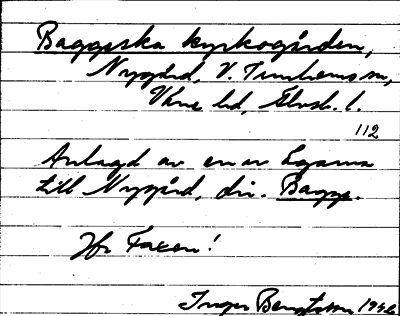 Baggeska kyrkogården,
Nygård, V. Tunhems sn,
Väne hd, Älvsb. l.
112
Anlagd av en av ägarna
till Nygård, dir. Bagge.
Jfr Faxen!
Inger Bengtsson 1946